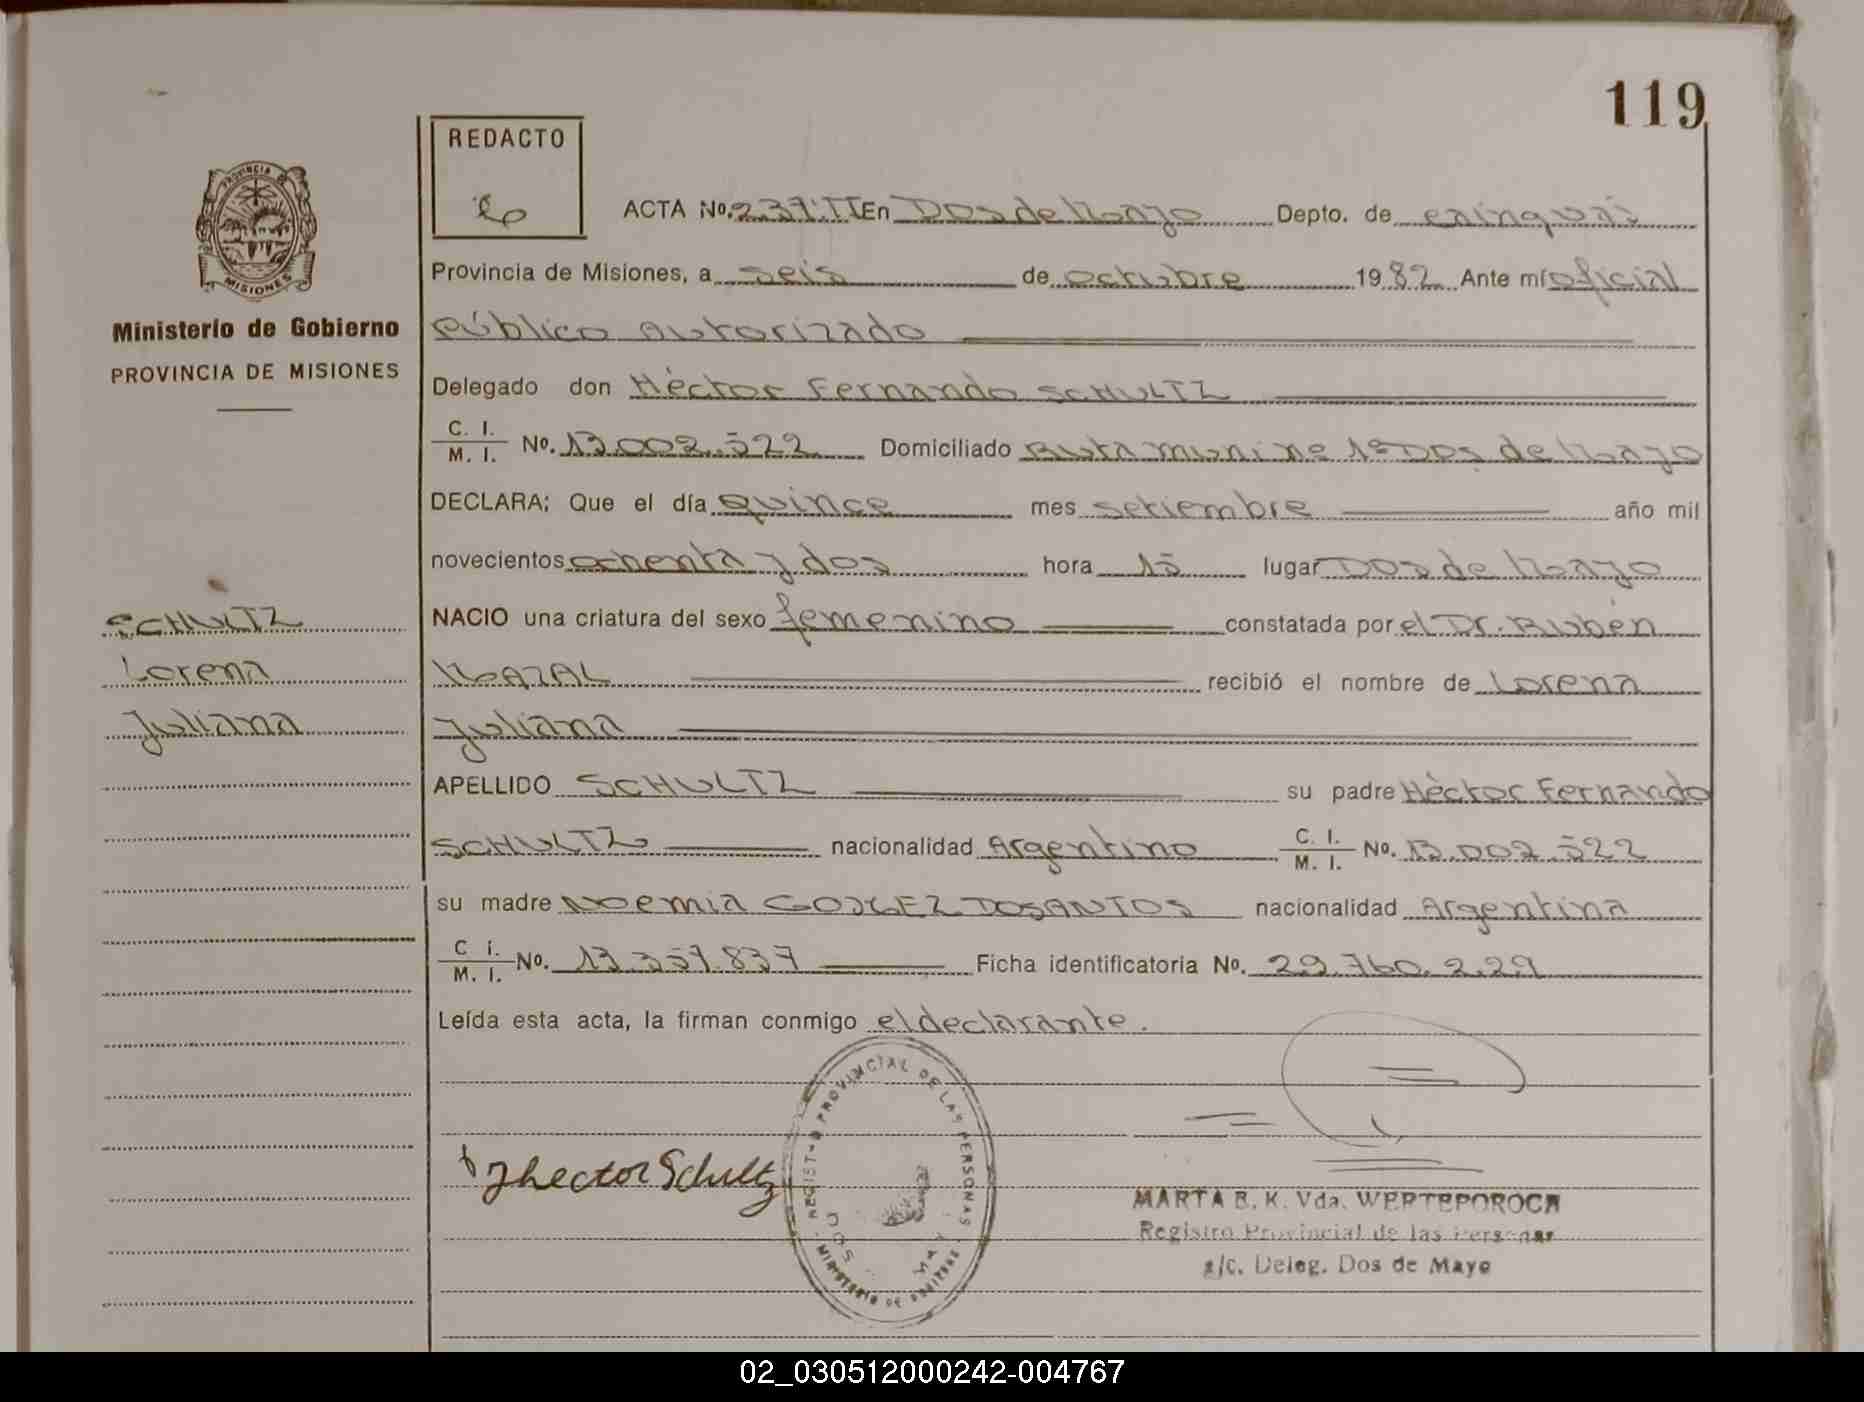 119
REDACTO
PROVINCIA
MISIONES
ACTA No. 237:II En Dos de Mayo Depto. de cainguás
Provincia de Misiones, a seis de octubre 1982 Ante mí oficial
Ministerio de Gobierno
público autorizado
PROVINCIA DE MISIONES
Delegado don Héctor Fernando SCHULTZ
C. I. / M. I. No. 13.002.522 Domiciliado Ruta muni ne 1º Dos de Mayo
DECLARA; Que el día quince mes setiembre año mil
novecientos ochenta y dos hora 15 lugar Dos de Mayo
SCHULTZ
NACIO una criatura del sexo femenino constatada por el Dr. Rubén
Lorena
MAZAL recibió el nombre de Lorena
Juliana
Juliana
APELLIDO SCHULTZ su padre Héctor Fernando
SCHULTZ nacionalidad Argentino C. I. / M. I. No. 13.002.522
su madre Noemia DOSANTOS nacionalidad Argentina
C i. / M. I. No. 13.357.837 Ficha identificatoria No. 29.760.229
Leída esta acta, la firman conmigo el declarante.
REGISTRO PROVINCIAL DE LAS PERSONAS
DOS MAY
MINISTERIO DE GOBIERNO
hector Schultz
MARTA B. K. Vda. WERTEPOROCH
Registro Provincial de las Personas
a/c. Deleg. Dos de Mayo
02_030512000242-004767